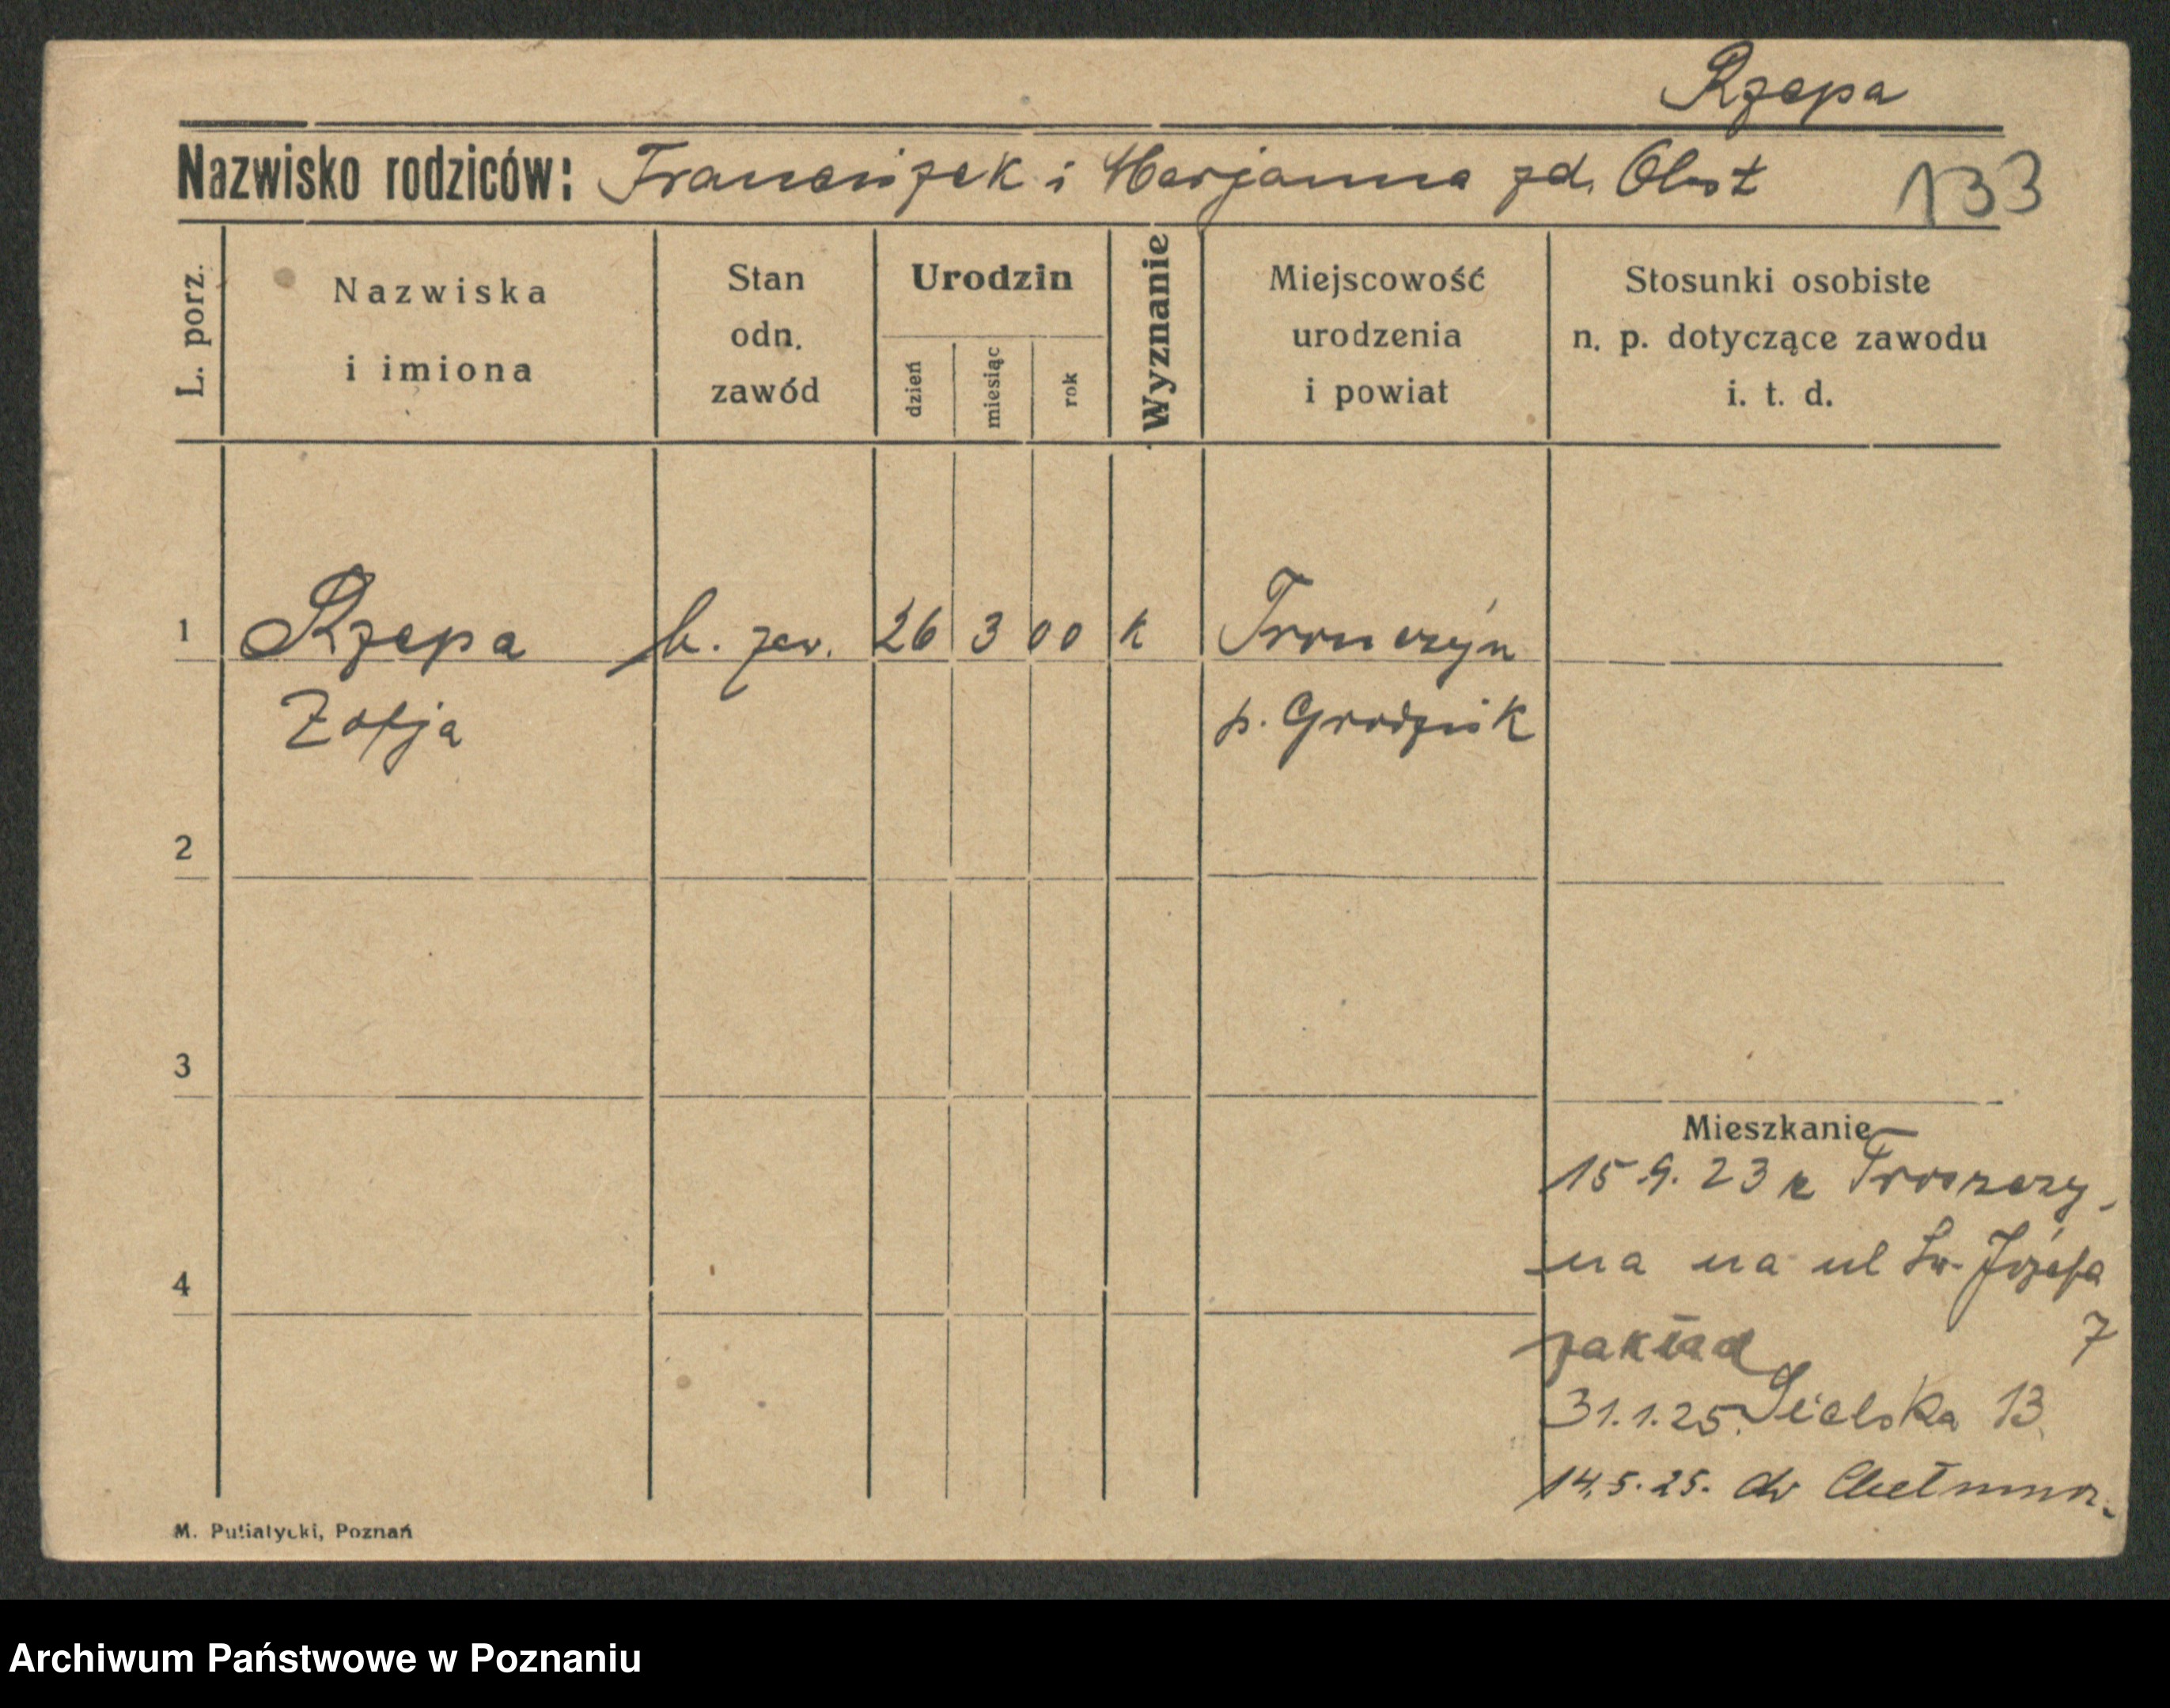 Rzepa
Nazwisko rodziców: Franciszek i Marjanna zd. Obst 133
L. porz.
Nazwiska
i imiona
Stan
odn.
zawód
Urodzin
dzień
miesiąc
rok
Wyznanie
Miejscowość
urodzenia
i powiat
Stosunki osobiste
n. p. dotyczące zawodu
i. t. d.
1 Rzepa b. zaw. 26 3 00 k
Zofja p. Grodzisk
2
3
4
Mieszkanie
15.9.23 z
na na ul Św. Józefa
zakład 7
31.1.25. Sielska 13
14.5.25. do
M. Putiatycki, Poznań
Archiwum Państwowe w Poznaniu